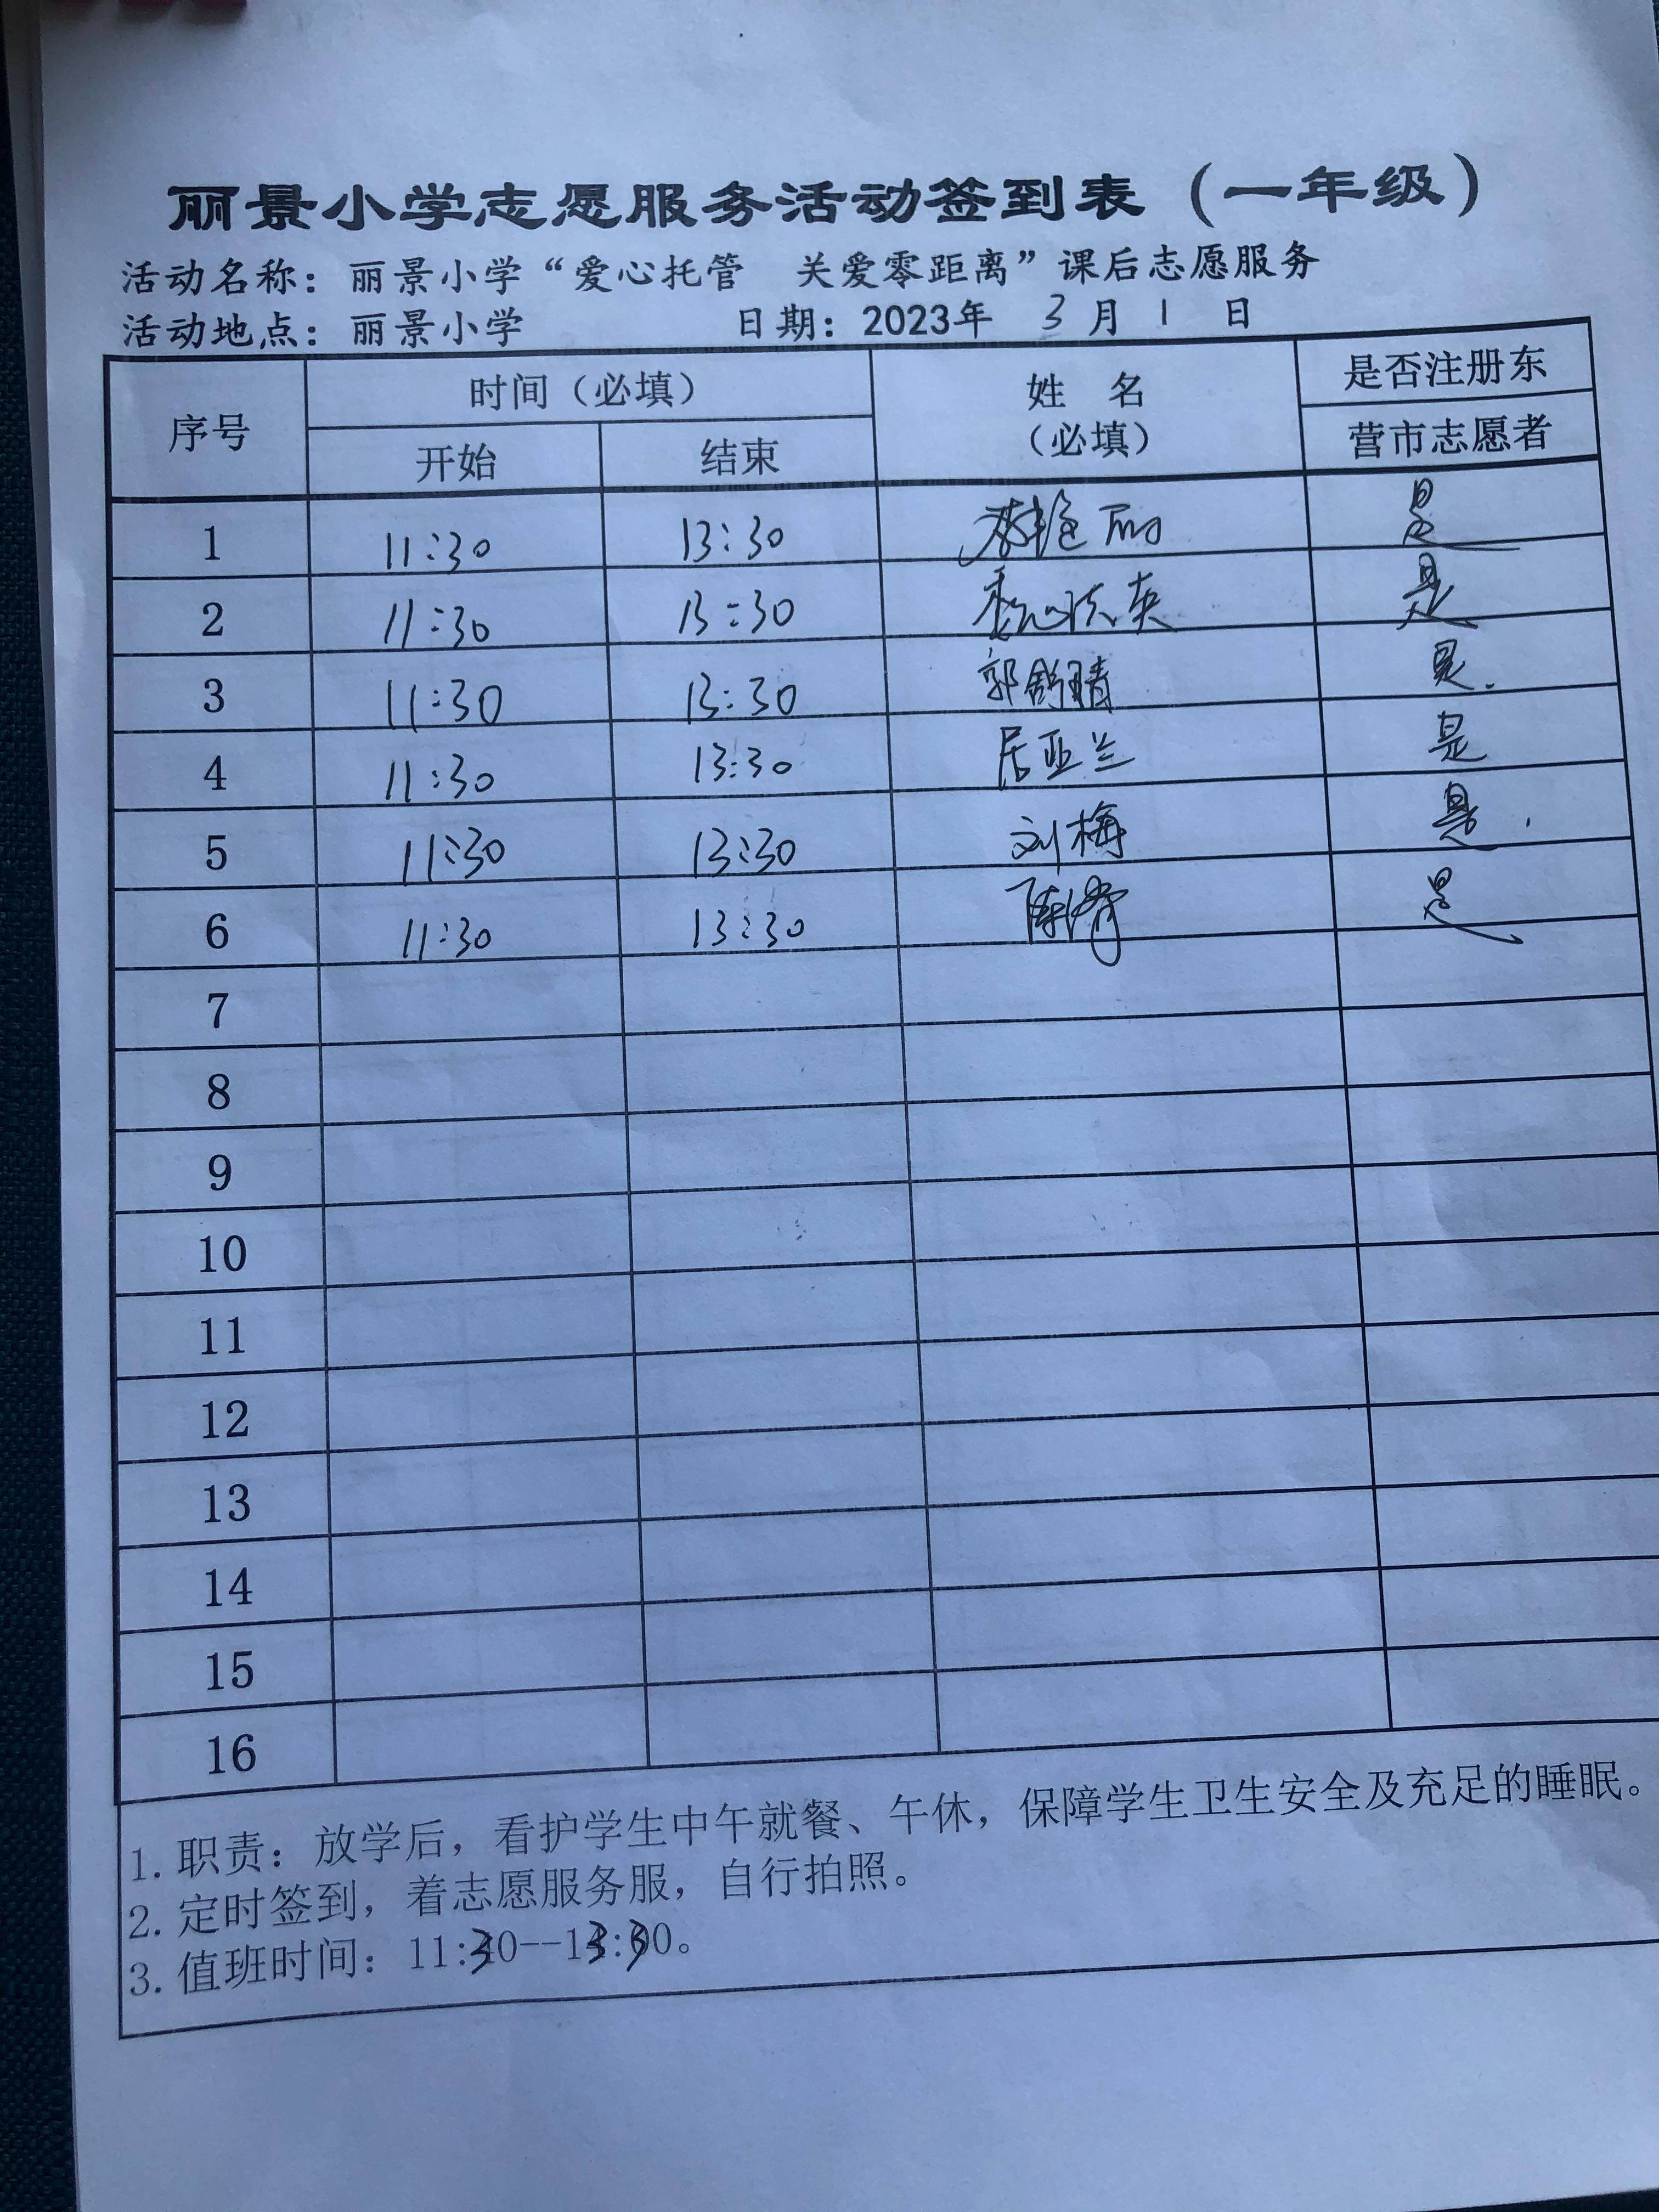 丽景小学志愿服务活动签到表（一年级）
活动名称：丽景小学“爱心托管 关爱零距离”课后志愿服务
活动地点：丽景小学 日期：2023年 3 月 1 日
序号 时间（必填） 姓 名 是否注册东
开始 结束 （必填） 营市志愿者
1 11:30 13:30 是
2 11:30 13:30 是
3 11:30 13:30 郭舒晴 是.
4 11:30 13:30 居亚兰 是
5 11:30 13:30 刘梅 是.
6 11:30 13:30 是
7
8
9
10
11
12
13
14
15
16
1. 职责：放学后，看护学生中午就餐、午休，保障学生卫生安全及充足的睡眠。
2. 定时签到，着志愿服务服，自行拍照。
3. 值班时间：11:30--13:30。